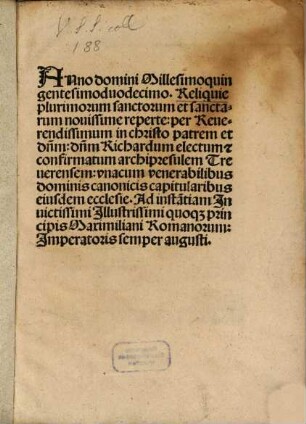 V. S. S. coll
188
ANno domini Millesimoquin
gentesimoduodecimo. Reliquie
plurimorum sanctorum et sancta-
rum nouissime reperte: per Reue-
rendissimum in christo patrem et
dñm: dñm Richardum electum ⁊
confirmatum archipresulem Tre
uerensem: vnacum venerabilibus
dominis canonicis capitularibus
eiusdem ecclesie. Ad instãtiam In
uictissimi Illustrissimi quoqꝫ prin
cipis Maximiliani Romanorum:
Imperatoris semper augusti.